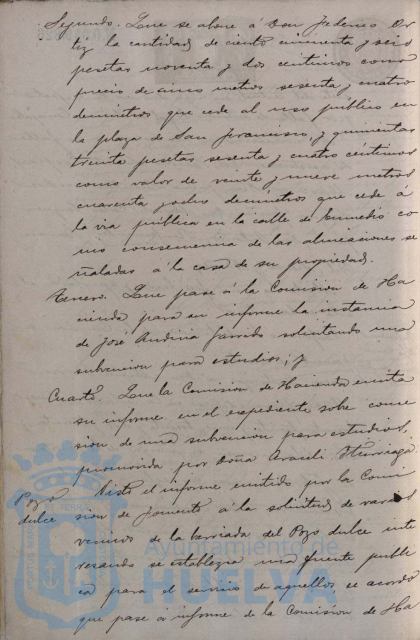 Segundo. Que se abone á Don Federico Or-
tiz la cantidad de ciento cincuenta y seis
pesetas noventa y dos céntimos como
precio de cinco metros sesenta y cuatro
decímetros que cede al uso público en
la plaza de San Francisco, y quinientas
treinta pesetas sesenta y cuatro céntimos
como valor de veinte y nueve metros
cuarenta y ocho decímetros que cede á
la vía pública en la calle de Enmedio co-
mo consecuencia de las alineaciones se-
ñaladas á la casa de su propiedad.
Tercero. Que pase á la Comision de Ha-
cienda para su informe la instancia
de José Garrido solicitando una
subvencion para estudios; y
Cuarto. Que la Comision de Hacienda emita
su informe en el expediente sobre conce-
sion de una subvencion para estudios,
promovida por Doña Araceli Iturriaga.
Pozo dulce
Visto el informe emitido por la Comi-
sion de fomento á la solicitud de varios
vecinos de la barriada del Pozo dulce inte-
resando se establezca una fuente públi-
ca para el servicio de aquellos, se acordó
que pase á informe de la Comision de Ha-
Ayuntamiento de
HUELVA